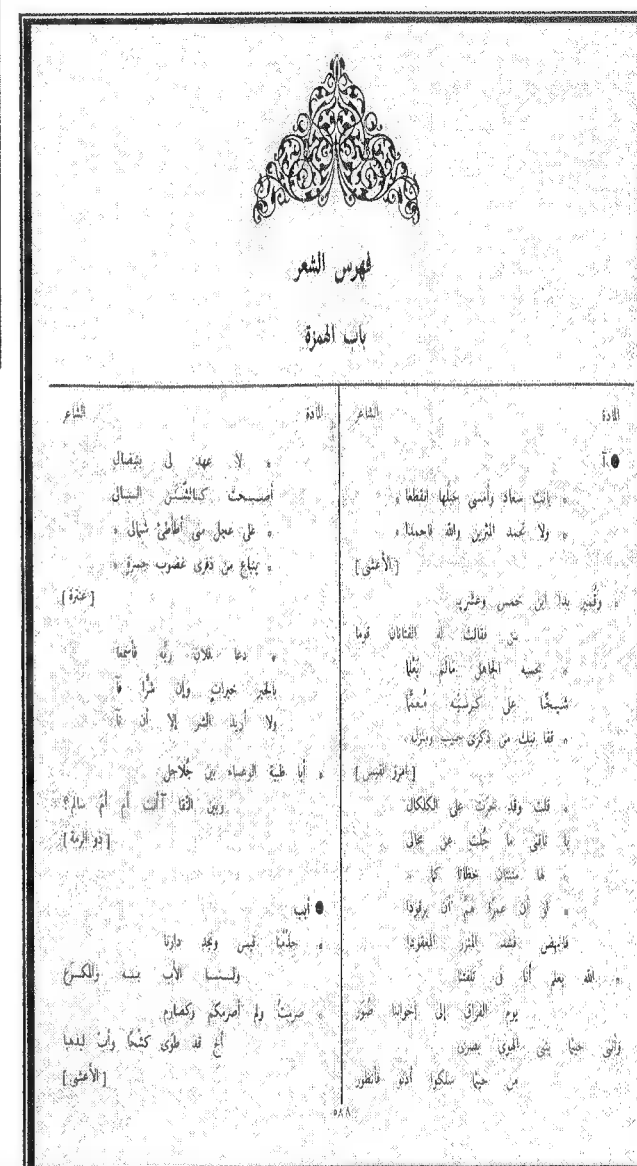 فهرس الشعر
باب الهمزة
المادة الشاعر
● آ
* بانت سعاد وأمسى حبلها انقطعا *
* ولا تحمد المثرين والله فاحمدا *
[الأعشى]
* وقُمير بدا ابن خمس وعشريـ
ـن فقالت له الفتاتان قوما
* يحسبه الجاهل مالم يَعْلَما
شيخًا على كرسيّه مُعمَّما
* قفا نبك من ذكرى حبيب ومنزل *
[امرؤ القيس]
* قلت وقد خرت على الكلكال
يا ناقتى ما جُلْتَ عن مجالى
* لها متنتان خظاتا كما *
* لو أن عمرًا هَمَّ أن يرقودا
فانهض فشد المئزر المعقودا
* الله يعلم أنا فى تلفتنا
يوم الفراق إلى إخواننا صُوَر
وأننى حيثما يثنى الهوى بصرى
من حيثما سلكوا أدنو فأنظور
المادة الشاعر
* لا عهد لى بنيضال
أصبحت كالشَّنّ البال
* على عجل منى أطأطئ شيمالى *
* ينباع من ذفرى غضوب جسرة *
[عنترة]
* دعا فلان ربَّه فأسمعا
بالخير خيراتٍ وإن شرًّا فآ
ولا أريد الشر إلا أن تآ
* أيا ظبية الوعساء بين جُلاجل
وبين النقا آأنت أم أمّ سالم؟
[ذو الرمة]
● أبب
* جِذْمُنا قيس ونجد دارنا
ولـنـا الأب بـه والمكـرع
* صرمتُ ولم أصرمكم وكصارم
أخ قد طوى كشحًا وأبَّ ليذهبا
[الأعشى]
٥٨٨